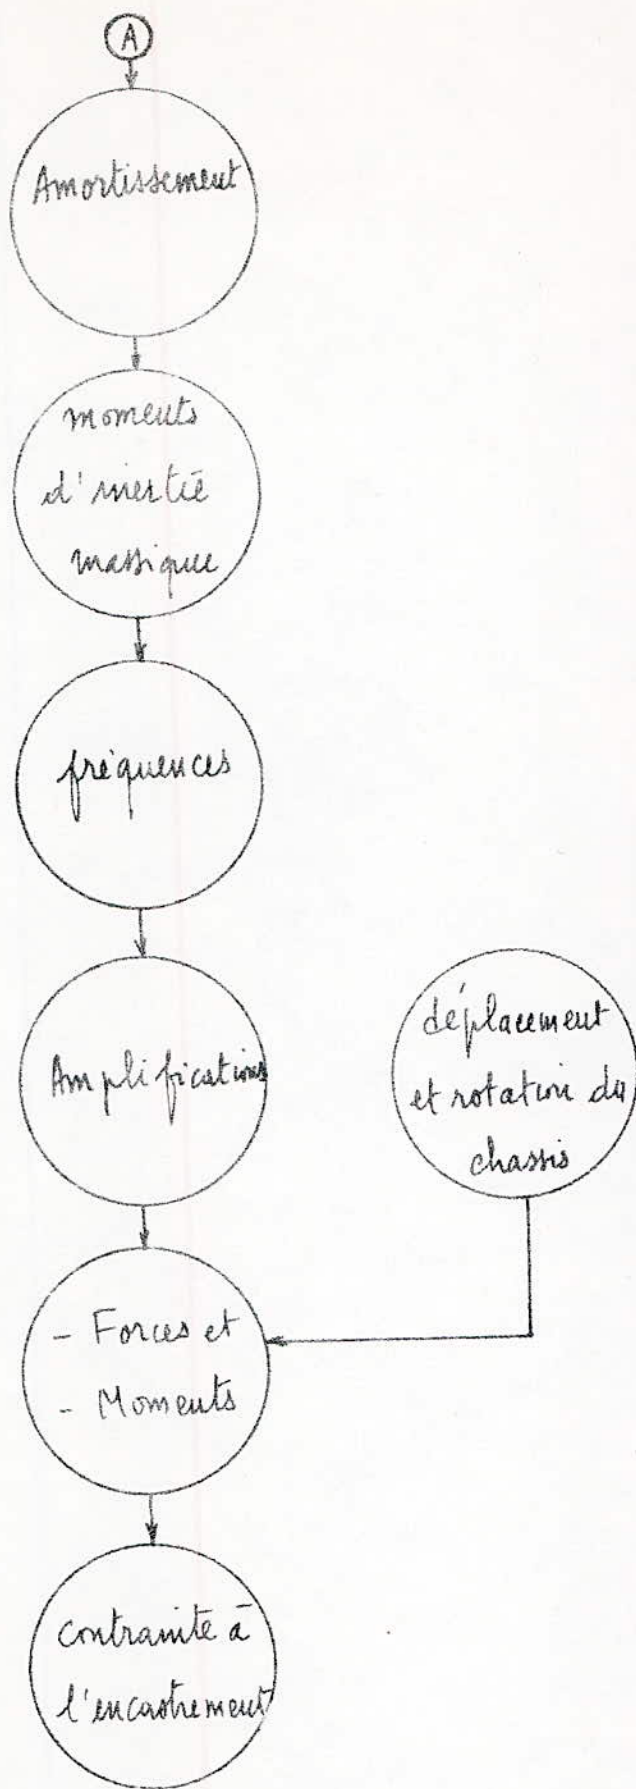 A
Amortissement
moments
d'inertie
massique
fréquences
Amplifications
déplacement
et rotation du
chassis
- Forces et
- Moments
contrainte à
l'encastrement